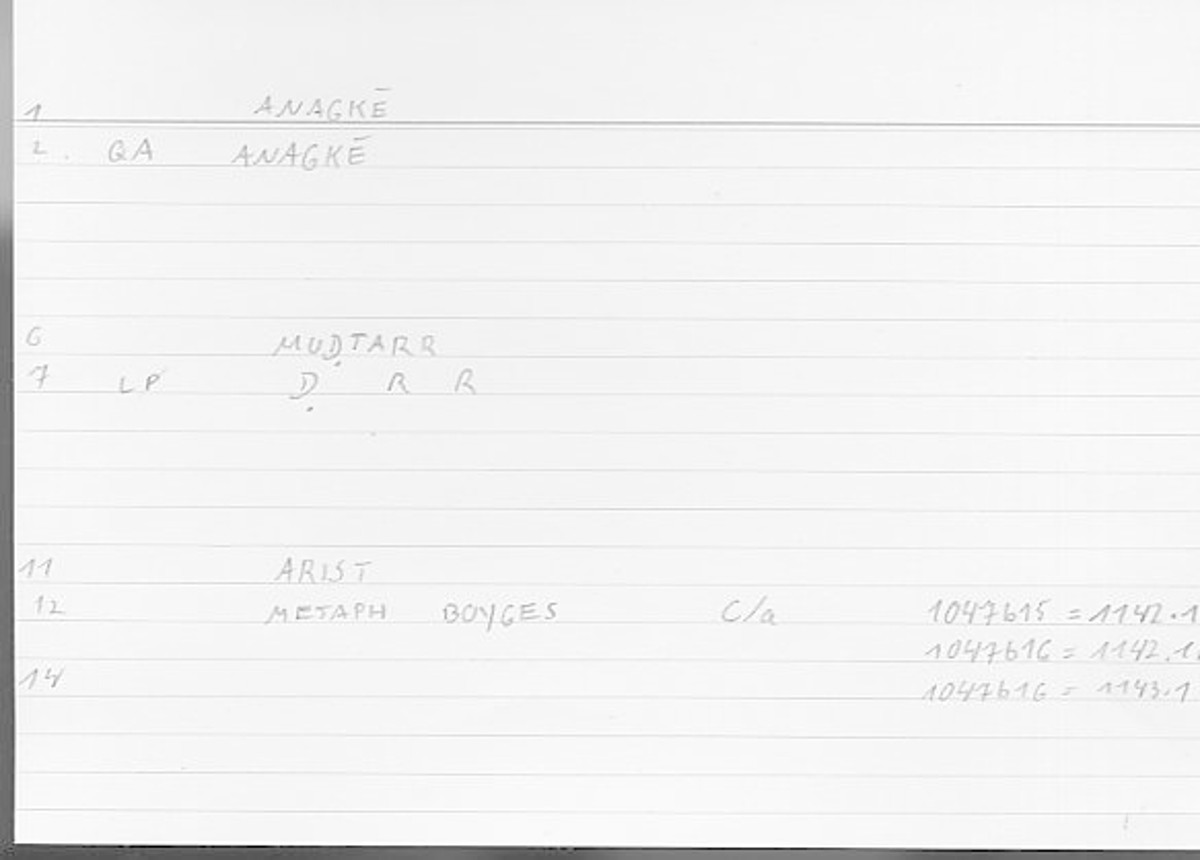 1 ANAGKĒ
2. GA ANAGKĒ
6 MUḌTARR
7 LP Ḍ R R
11 ARIST
12 METAPH BOYGES C/a 1047615 = 1142.1
1047616 = 1142.1
14 1047616 = 1143.1